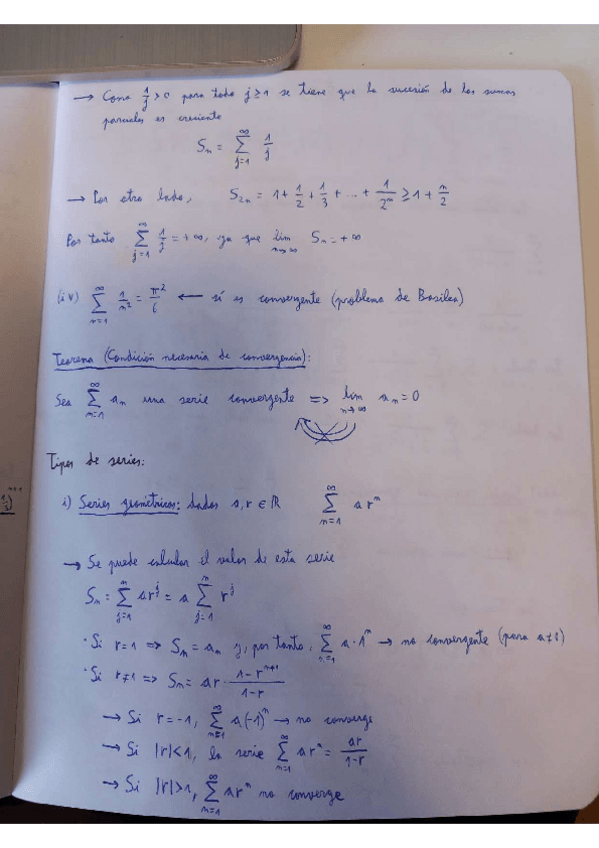 → Como 1/j > 0 para todo j ≥ 1 se tiene que la sucesión de las sumas
parciales es creciente
Sₙ = ∑_{j=1}^{∞} 1/j
→ Por otro lado, S₂ₙ = 1 + 1/2 + 1/3 + ... + 1/2ⁿ ≥ 1 + n/2
Por tanto ∑_{j=1}^{∞} 1/j = +∞, ya que lim_{n→∞} Sₙ = +∞
(iv) ∑_{n=1}^{∞} 1/n² = π²/6 ← sí es convergente (problema de Basilea)
Teorema (Condición necesaria de convergencia):
Sea ∑_{n=1}^{∞} aₙ una serie convergente => lim_{n→∞} aₙ = 0
Tipos de series:
i) Series geométricas: dados a, r ∈ ℝ ∑_{n=1}^{∞} a rⁿ
→ Se puede calcular el valor de esta serie
Sₙ = ∑_{j=1}^{n} a r^j = a ∑_{j=1}^{n} r^j
· Si r = 1 => Sₙ = an y, por tanto, ∑_{n=1}^{∞} a · 1ⁿ → no convergente (para a ≠ 0)
· Si r ≠ 1 => Sₙ = ar · (1 - r^{n+1})/(1 - r)
→ Si r = -1, ∑_{n=1}^{∞} a(-1)ⁿ → no converge
→ Si |r| < 1, la serie ∑_{n=1}^{∞} a rⁿ = ar/(1 - r)
→ Si |r| > 1, ∑_{n=1}^{∞} a rⁿ no converge